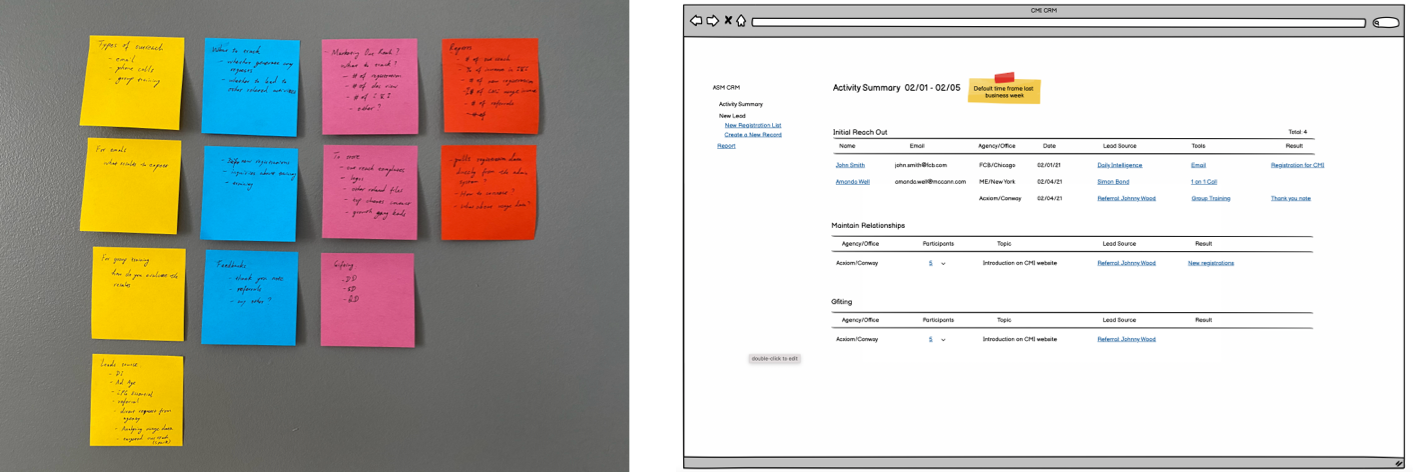 Types of outreach
- email
- phone calls
- group training
What to track
- whether generates any
responses
- whether to lead to
other related activities
- Marketing Out Reach?
what to track?
- # of registration
- # of
- #
- other?
Reports
- # of out reach
- % of increase in
- # of new registration
- # of CMI usage
- # of referrals
- # of
For emails
what results to expose
- new registrations
- inquiries about training
- training
To store
- out reach templates
- logos
- other related files
-
- growth
- pulls registration data
directly from the admin
system?
- How to measure?
- what about usage data?
For group training
how do you evaluate the
results
Feedbacks
- thank you note
- referrals
- any other?
Gifting
Leads source
- DI
- Ad Age
- referral
- direct request from
agency
- Analyzing usage data
CMI CRM
ASM CRM
Activity Summary
New Lead
New Registration List
Create a New Record
Report
Activity Summary 02/01 - 02/05
Default time frame last
business week
Initial Reach Out
Total: 4
Name Email Agency/Office Date Lead Source Tools Result
John Smith john.smith@fcb.com FCB/Chicago 02/01/21 Daily Intelligence Email Registration for CMI
Amanda Well amanda.well@mccann.com ME/New York 02/04/21 Simon Bond 1 on 1 Call
Acxiom/Conway 02/04/21 Referral Johnny Wood Group Training Thank you note
Maintain Relationships
Agency/Office Participants Topic Lead Source Result
Acxiom/Conway 5 Introduction on CMI website Referral Johnny Wood New registrations
Gfiting
Agency/Office Participants Topic Lead Source Result
Acxiom/Conway 5 Introduction on CMI website Referral Johnny Wood
double-click to edit